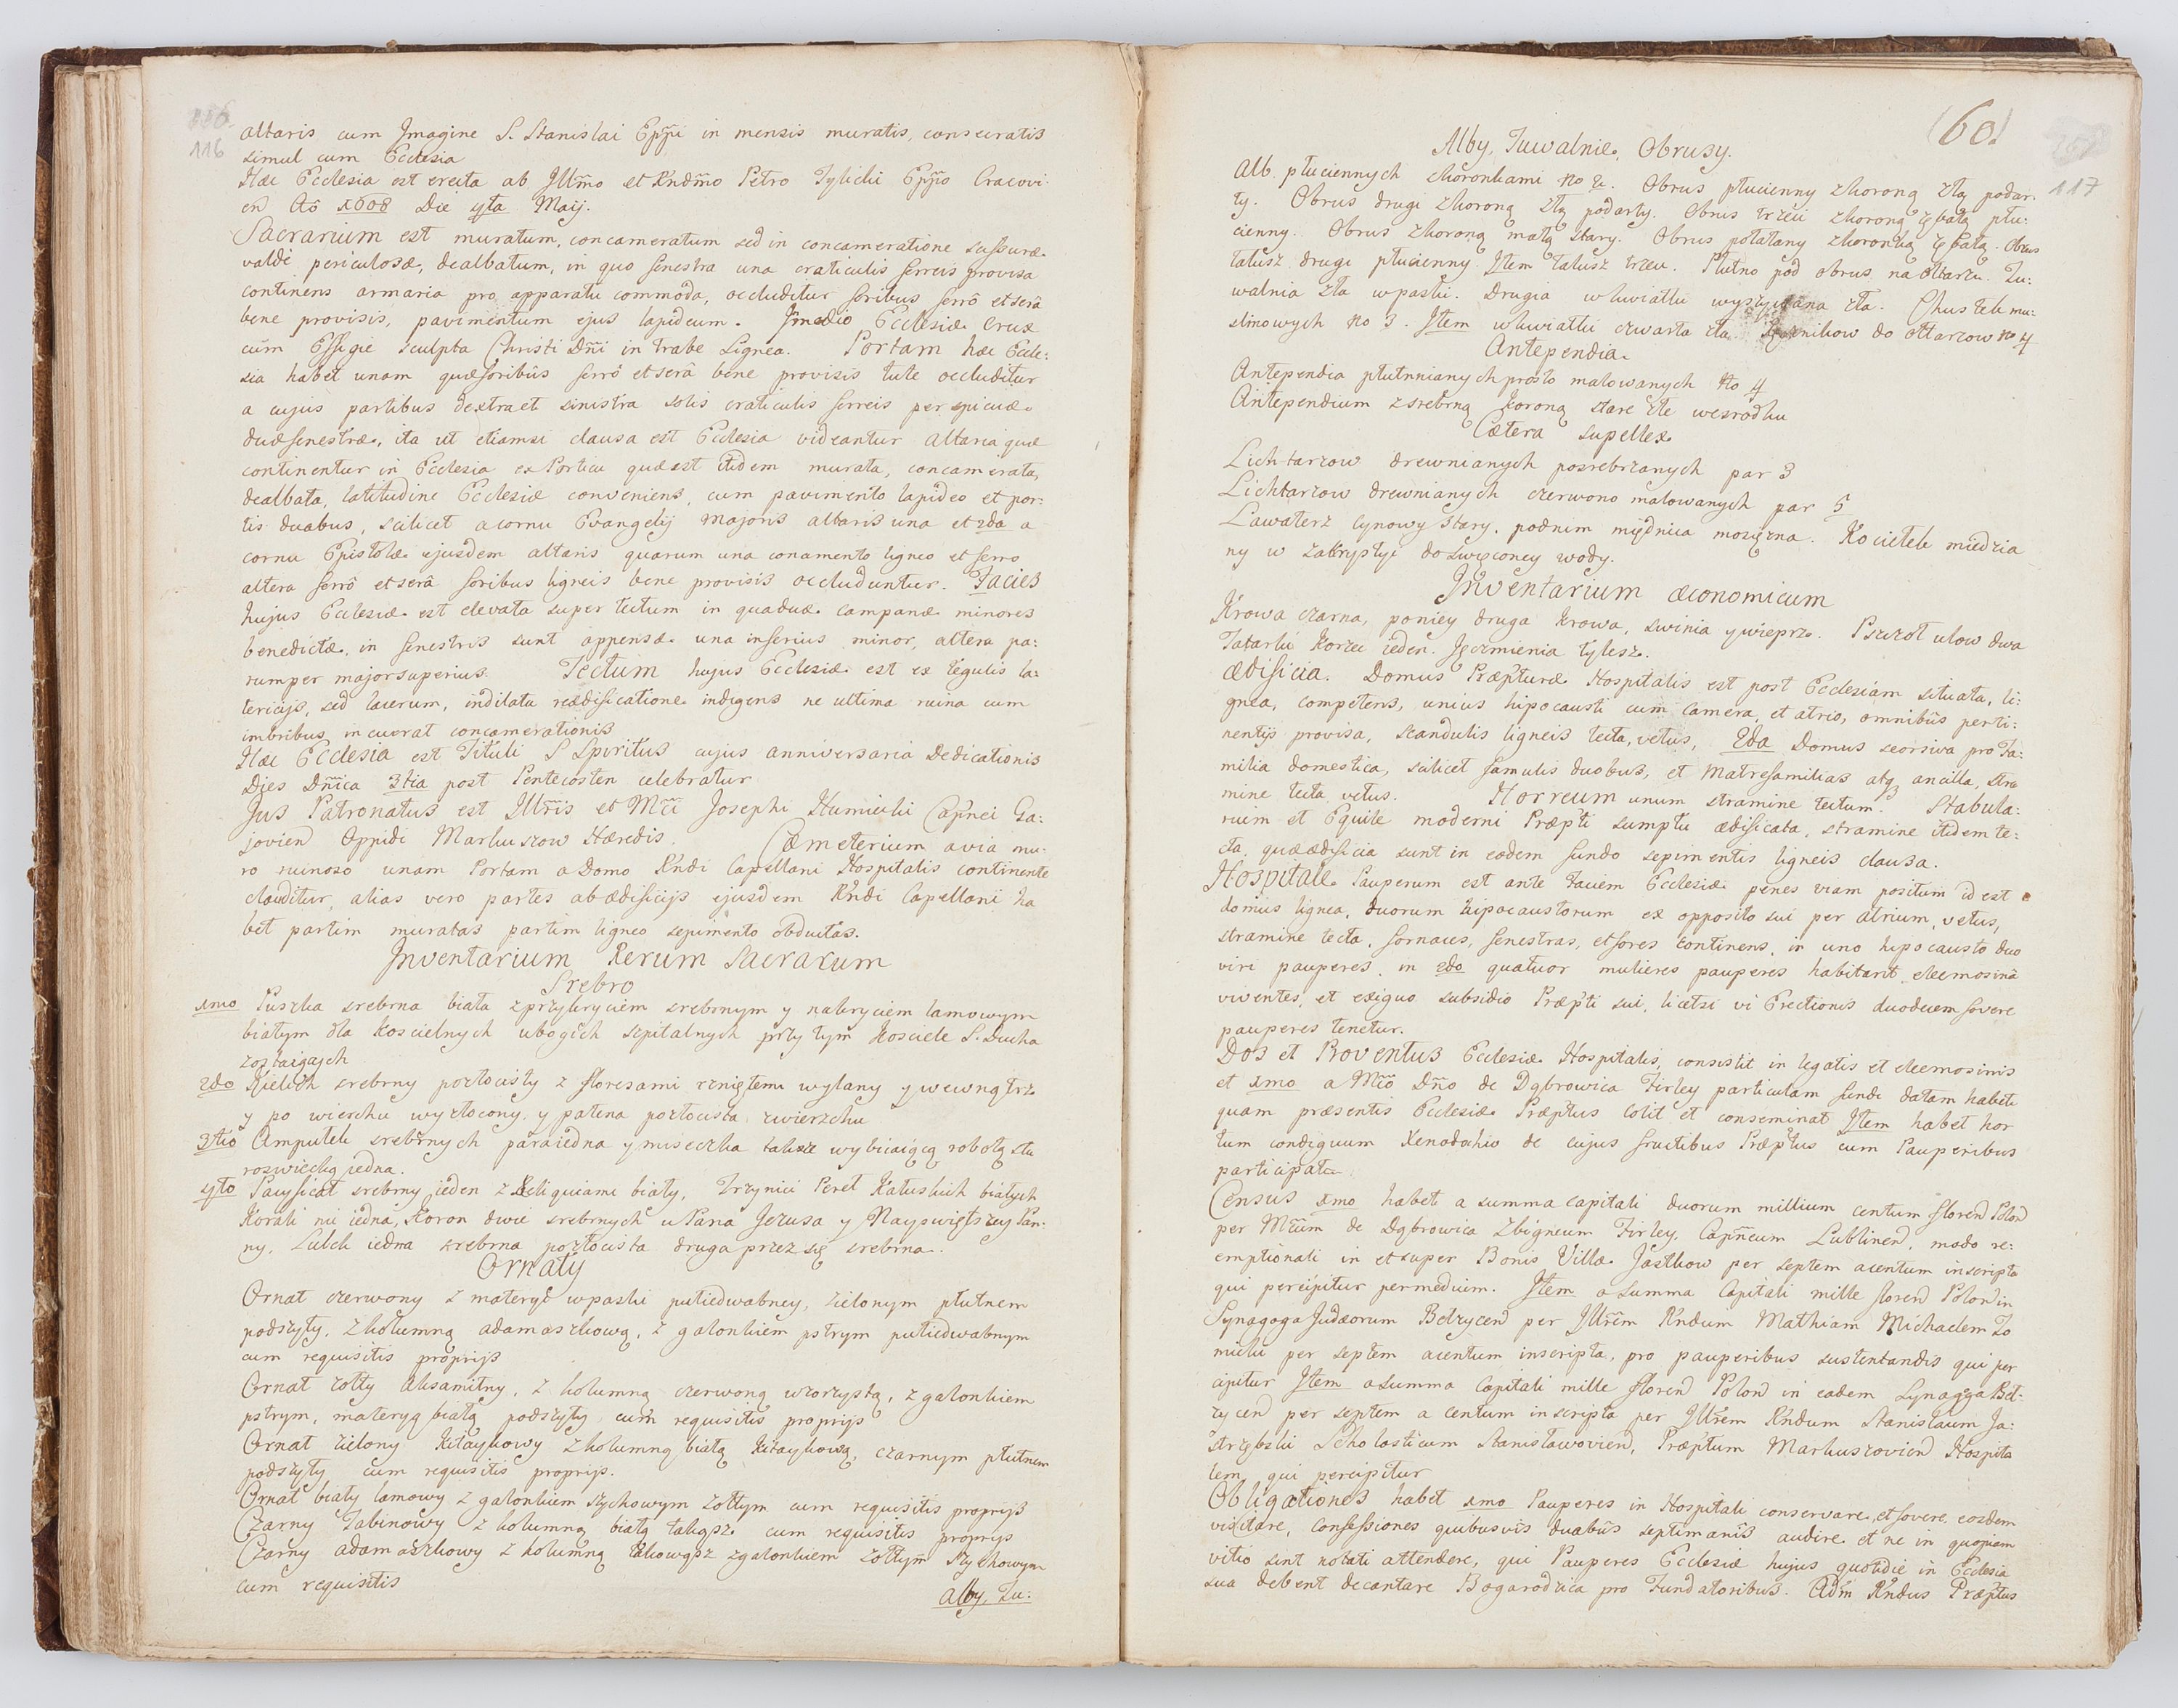 116
altaris cum Imagine S. Stanislai Eppi in mensis muratis, consecratis
simul cum Ecclesia
Hæc Ecclesia est erecta ab Illm̃o et Rndm̃o Petro Tylicki Epp̃o Cracovi
en Aô 1608 Die 4ta Maij.
Sacrarium est muratum, concameratum sed in concameratione scissuræ
valde periculosæ, dealbatum, in quo fenestra una craticulis ferreis provisa
continens armaria pro apparatu commoda, occluditur foribus ferrô et serâ
bene provisis, pavimentum ejus lapideum. In medio Ecclesiæ Crux
cum Effigie sculpta Christi Dñi in trabe Lignea. Portam hæc Eccle:
sia habet unam quæ foribus ferrô et serâ bene provisis tute occluditur
a cujus partibus dextra et sinistra solis craticulis ferreis perspicuæ
duæ fenestræ, ita ut etiamsi clausa est Ecclesia videantur altaria quæ
continentur in Ecclesia ex Porticu quæ est itidem murata, concamerata,
dealbata, latitudine Ecclesiæ conveniens, cum pavimento lapideo et por:
tis duabus, scilicet a cornu Evangelij majoris altaris una et 2da a
cornu Epistolæ ejusdem altaris quarum una conamento ligneo et ferro
altera ferrô et serâ foribus ligneis bene provisis occluduntur. Facies
hujus Ecclesiæ est elevata super tectum in qua duæ campanæ minores
benedictæ, in fenestris sunt appensæ una inferius minor, altera pa:
rumper major superius. Tectum hujus Ecclesiæ est ex tegulis la:
tericijs, sed lacerum, indilata reædificatione indigens ne ultima ruina cum
imbribus incurrat concamerationis
Hæc Ecclesia est Tituli S Spiritûs cujus anniversaria Dedicationis
Dies Dñica 3tia post Pentecosten celebratur
Jus Patronatus est Illr̃is et Mci Josephi Humiecki Capnei Ga:
jovien Oppidi Markuszow Hæredis. Cæmeterium avia mu:
ro ruinoso unam Portam a Domo Rndi Capellani Hospitalis continente
clauditur, alias vero partes ab ædificijs ejusdem Rndi Capellani ha
bet partim muratas partim ligneo sepimento obductas.
Inventarium Rerum Sacrarum
Srebro
1mo Puszka srebrna biała z przykryciem srebrnym y nakryciem lamowym
białym dla koscielnych ubogich szpitalnych przy tym Kosciele S. Ducha
zostaiących
2do Kielich srebrny pozłocisty z floresami rzniętemi wylany y wewnątrz
y po wierzchu wyzłocony, y patena pozłocista zwierzchu
3tio Ampułek srebrnych para iedna y miseczka także wybiiaiącą robotą sta
roswiecką iedna.
4to Pacyficał srebrny ieden z Reliquiami biały, Trzynici Pereł Kałuskich białych
Korali nić iedna, Koron dwie srebrnych u Pana Jezusa y Nayswiętszey Pan:
ny. Łulek iedna srebrna pozłocista druga przez się srebrna.
Ornaty
Ornat czerwony z materyi w paski pułiedwabney, zielonym płutnem
podszyty, z kolumną adamaszkową, z galonkiem pstrym pułiedwabnym
cum requisitis proprijs
Ornat żołty Aksamitny, z kolumną czerwoną wzorzystą, z galonkiem
pstrym, materyą białą podszyty cum requisitis proprijs
Ornat zielony kitaykowy z kolumną białą kitaykową, czarnym płutnem
podszyty cum requisitis proprijs.
Ornat biały lamowy z galonkiem szychowym żołtym cum requisitis proprijs
Czarny Tabinowy z kolumną białą takąsz cum requisitis proprijs
Czarny adamaszkowy z kolumną takowąsz z galonkiem żołtym szychowym
cum requisitis
Alby, Tu:
(60)
117
Alby, Tuwalnie, Obrusy.
Alb płuciennych z koronkami No 2. Obrus płucienny z koroną złą podar:
ty. Obrus drugi z koroną złą podarty. Obrus trzeci z koroną ząbatą płu:
cienny. Obrus z koroną małą stary. Obrus połatany z koronką ząbatą. Obrus
tatusz drugi płucienny. Item tatusz trzeci. Płutno pod obrus na Ołtarzu. Tu:
walnia zła w paski. Drugia w kwiatki wyszywana zła. Chustek mu:
slinowych No 3. Item w kwiatki czwarta zła. do ołtarzow No 4
Antependia.
Antependia płutnnianych prosto malowanych No 4
Antependium z srebrną koroną stare złe wesrodku
Cætera supellex
Lichtarzow drewnianych posrebrzanych par 3
Lichtarzow drewnianych czerwono malowanych par 5
Lawaterz Cynowy stary, podnim miednica mosięzna. Kociełek miedzia
ny w zakrystyi do swięconey wody.
Inventarium œconomicum
Krowa czarna, poniey druga krowa, swinia y wieprz. Pszczoł ulow dwa
Tatarki korzec ieden. Jęczmienia tylesz.
Ædificia. Domus Præpturæ Hospitalis est post Ecclesiam situata, li:
gnea, competens, unius hipocausti cum camera, et atrio, omnibus perti:
nentijs provisa, scandulis ligneis tecta, vetus, 2da Domus seorsiva pro Fa:
milia domestica, scilicet famulis duobus, et Matrefamilias atq ancilla, stra
mine tecta vetus. Horreum unum stramine tectum. Stabula:
rum et Equile moderni Præpti sumptu ædificata, stramine itidem te:
cta, quæ ædificia sunt in eodem fundo sepimentis ligneis clausa.
Hospitale Pauperum est ante faciem Ecclesiæ penes viam positum id est
domus lignea, duorum hipocaustorum ex opposito sui per atrium, vetus,
stramine tecta, fornaces, fenestras, et fores continens, in uno hipocausto duo
viri pauperes, in 2do quatuor mulieres pauperes habitant eleemosinâ
viventes, et exiguo subsidio Præpti sui, licet si vi Erectionis duodecem fovere
pauperes tenetur.
Dos et Proventus Ecclesiæ Hospitalis, consistit in legatis et eleemosinis
et 1mo a Mco Dño de Dąbrowica Firley particulam fundi datam habet
quam præsentis Ecclesiæ Præptus colit et conseminat Item habet hor
tum condignum Xenodochio de cujus fructibus Præptus cum Pauperibus
participat.
Census 1mo habet a summa capitali duorum millium centum floren Polon
per Mcum de Dąbrowica Zbigneum Firley, Capneum Lublinen, modo re:
emptionali in et super Bonis Villæ Jastkow per septem a centum inscripta
qui percipitur per medium. Item a Summa Capitali mille floren Polon in
Synagoga Judæorum Bełzycen per Illr̃em Rndum Mathiam Michaelem To
micki per septem a centum inscripta, pro pauperibus sustentandis qui per
cipitur Item a summa Capitali mille floren Polon in eadem Synagoga Beł:
zycen per septem a centum inscripta per Illr̃em Rndum Stanislaum Ja:
strzębski Scholasticum Stanisławovien, Præptum Markuszovien Hospita
lem qui percipitur
Obligationes habet 1mo Pauperes in Hospitali conservare, et fovere eosdem
visitare, Confessiones quibusvis duabus septimanis audire et ne in quopiam
vitio sint notati attendere, qui Pauperes Ecclesiæ hujus quotidie in Ecclesia
sua debent decantare Bogarodzica pro Fundatoribus. Adm Rndus Præptus